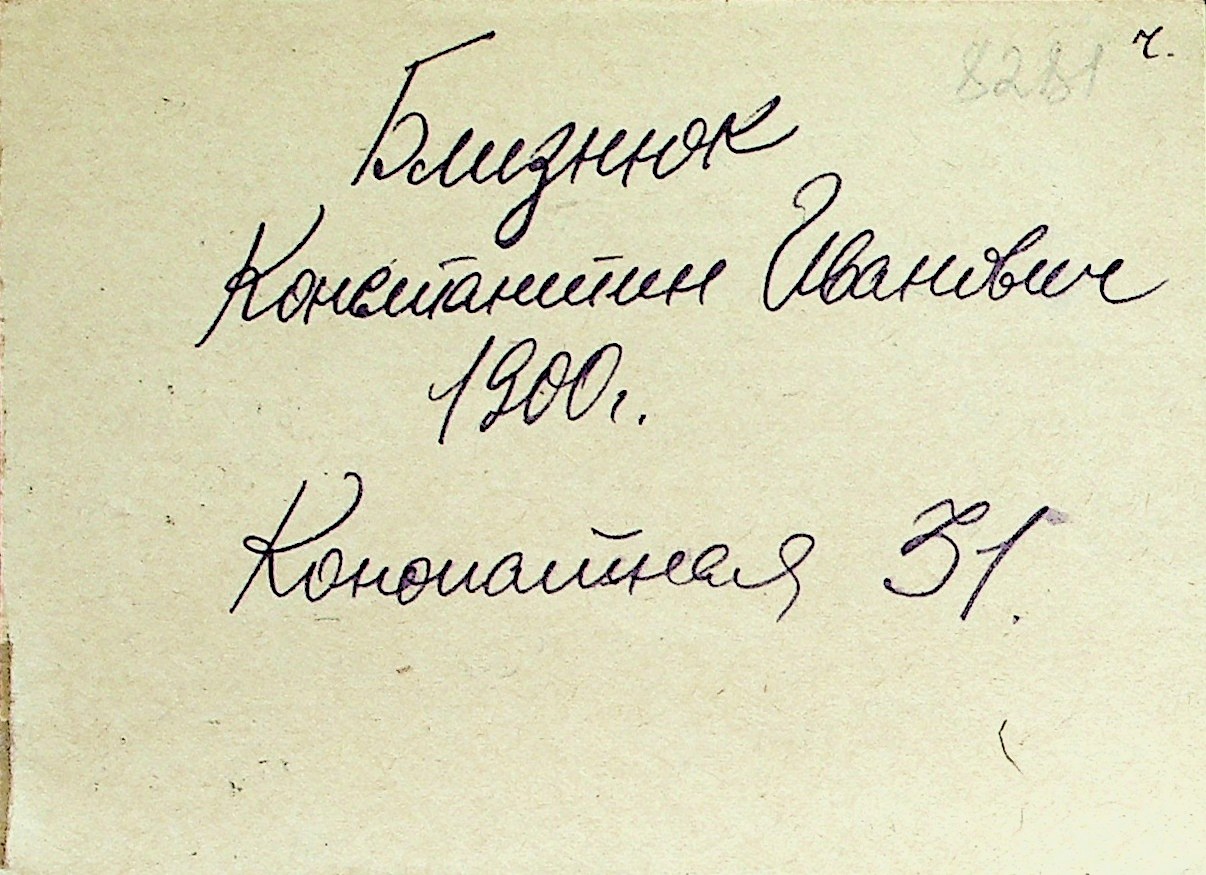 ч.
Близнюк
Константин Иванович
1900г.
Конопатная 31.